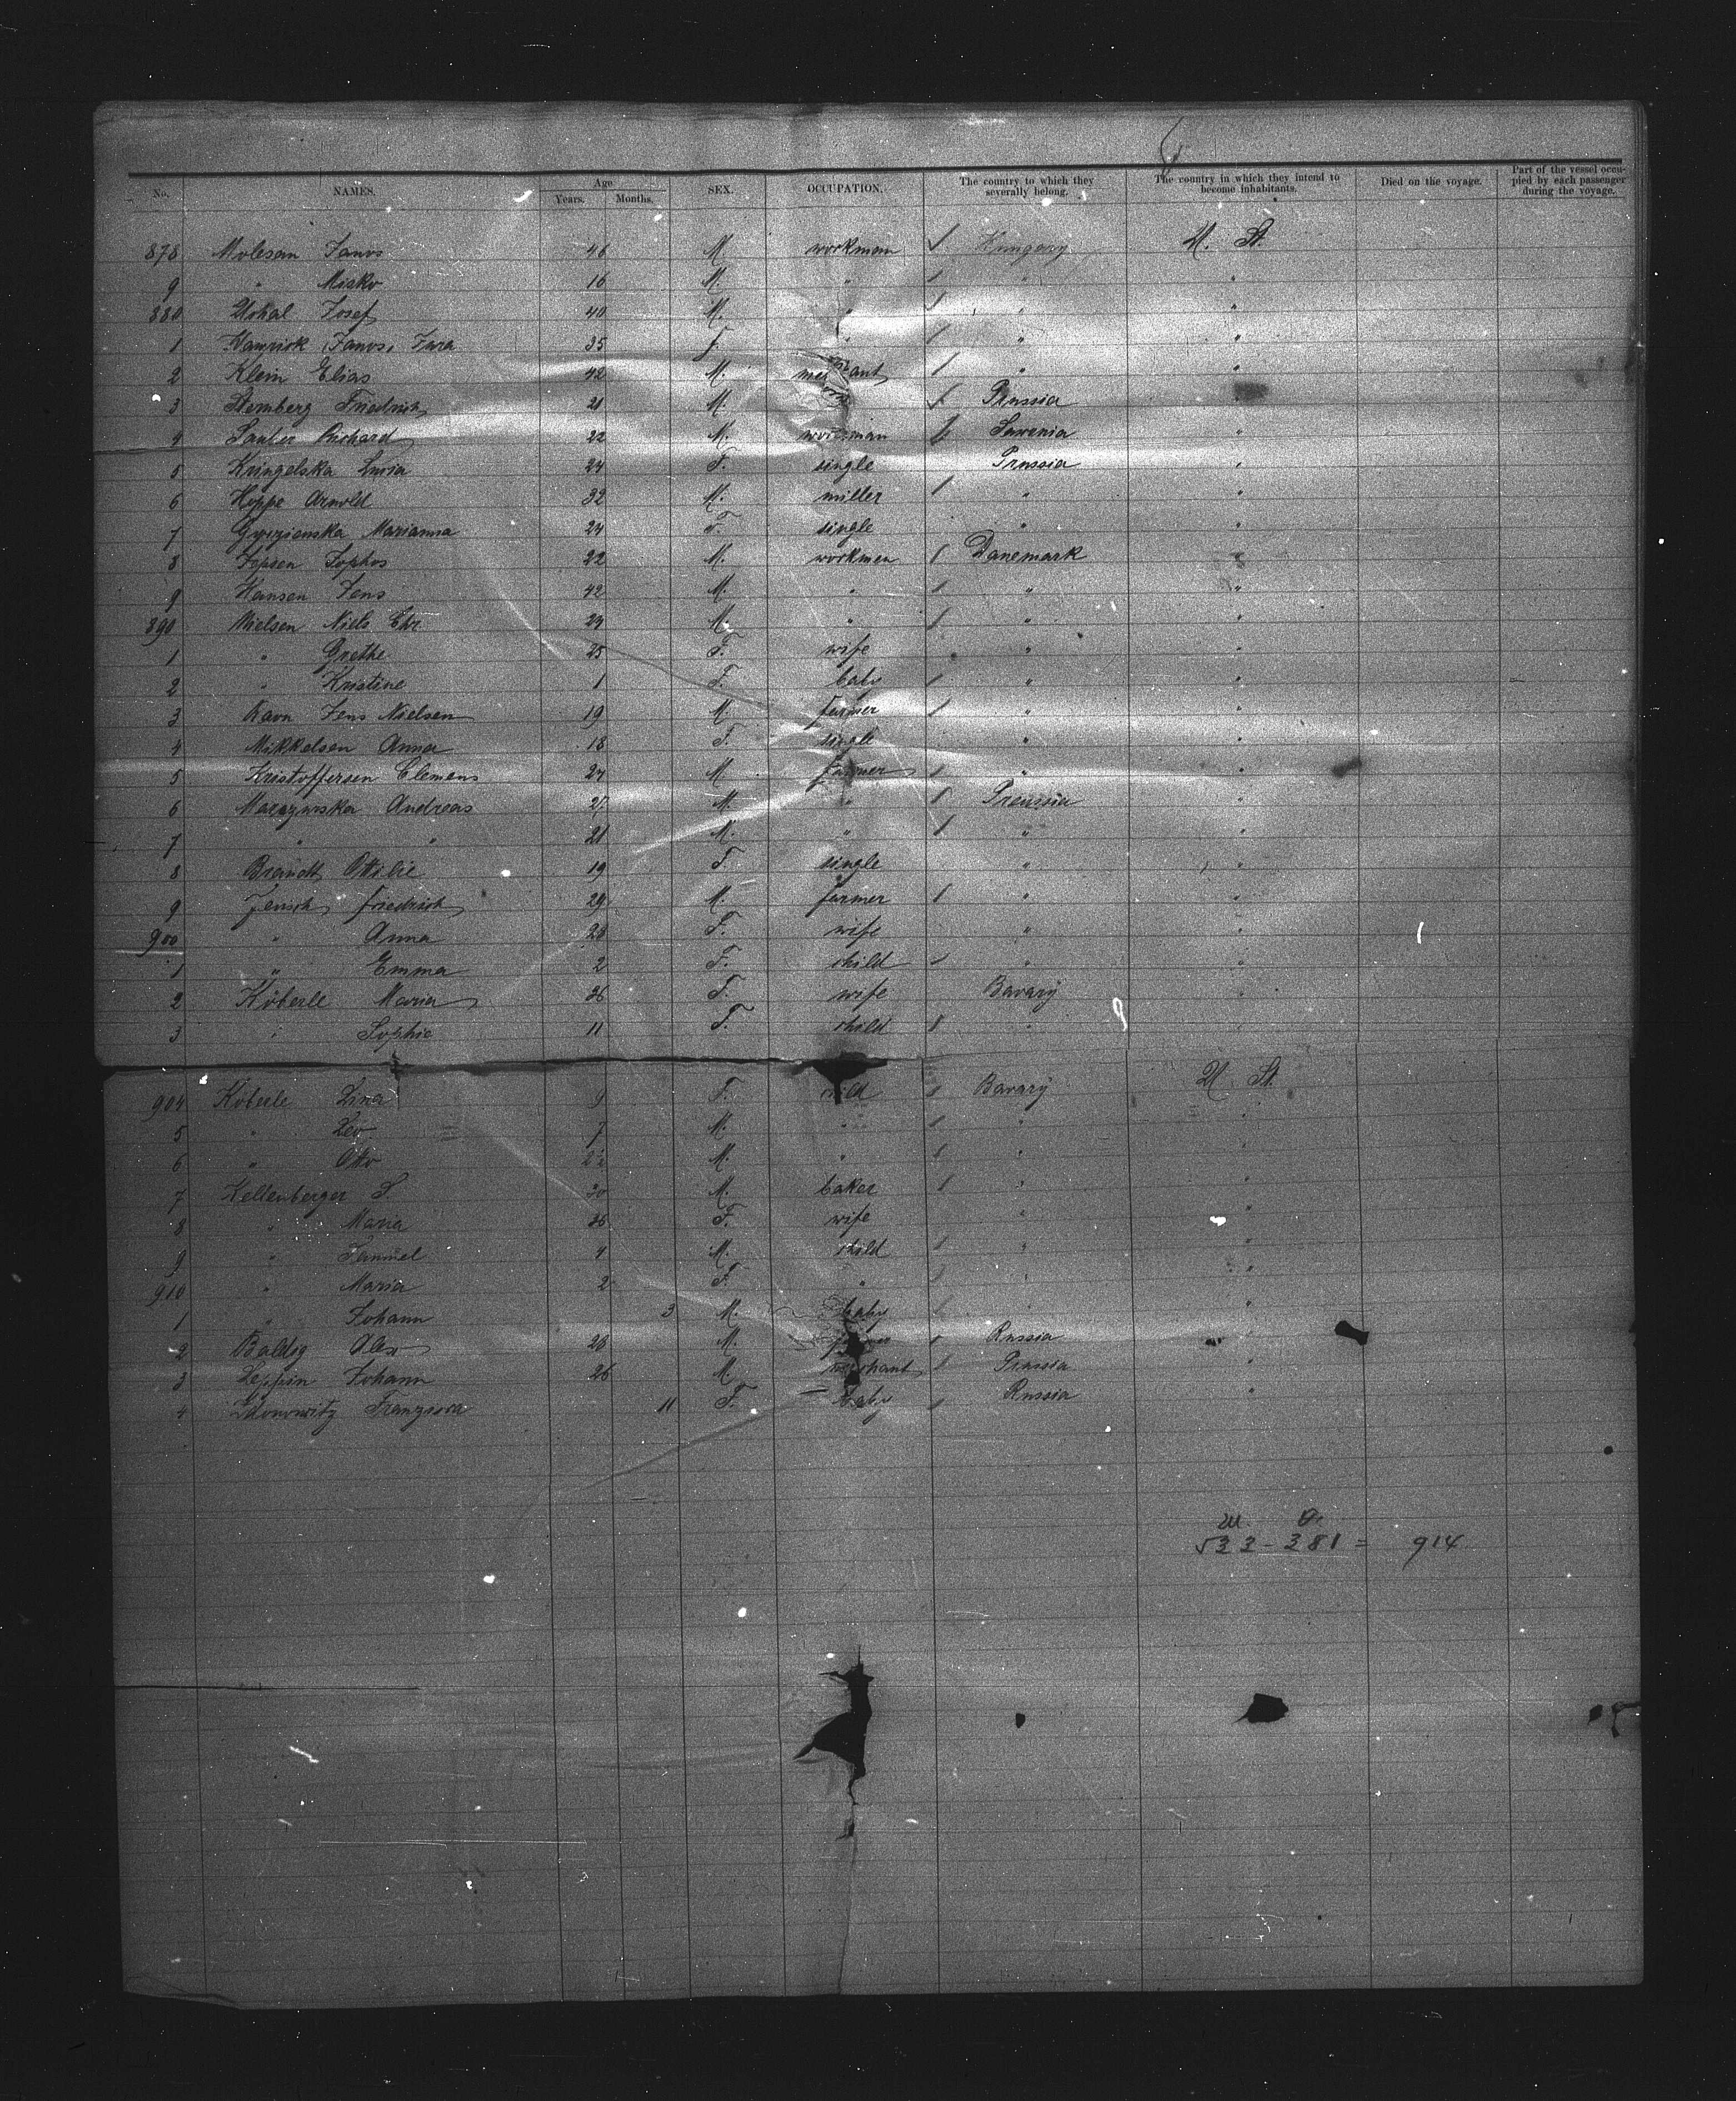 No. NAMES. Age Years. Months. SEX. OCCUPATION. The country to which they severally belong. The country in which they intend to become inhabitants. Died on the voyage. Part of the vessel occupied by each passenger during the voyage.
878 Molesan Janos 46 M workman Hungary U. St.
9 " Misko 16 M. " " "
880 Josef 40 M. " " "
1 Janos, 35 f. " " "
2 Klein Elias 42 M. " "
3 Sternberg Friedrich 21 M. Prussia
4 Richard 22 M. workman "
5 Kringelska Luisa 24 F. single Prussia "
6 Hoppe Arnold 32 M. miller " "
7 Marianna 24 F single " "
8 Jepsen Sophus 22 M. workman Danemark "
9 Hansen Jens 42 M. " " "
890 Nielsen Niels Chr. 24 M. " " "
1 " Grethe 25 F. wife " "
2 " Kristine 1 F. baby " "
3 Ravn Jens Nielsen 19 M. farmer " "
4 Mikkelsen Anna 18 F. single " "
5 Kristoffersen Clemens 24 M farmer " "
6 Andreas M. " Preussia "
7 " " 21 M. " " "
8 Brandt Ottilie 19 F. single " "
9 Jensch friedrich 29 M. farmer " "
900 " Anna 28 F. wife " "
1 " Emma 2 F. child " "
2 Köberle Maria 36 F. wife Bavary "
3 " Sophie 11 F. child "
904 Köberle Lina 9 F. child Bavary U. St.
5 " Leo 7 M. " " "
6 " Otto M. " " "
7 Kellenberger S. 30 M. baker " "
8 " Maria 36 F. wife " "
9 " Samuel 4 M. child " "
910 " Maria 2 F. " " "
1 " Johann 3 M. baby " "
2 Baldig Alex 28 M. Russia "
3 Leppin Johann 26 M. merchant Prussia "
4 11 F. baby Russia "
533 - 381 = 914